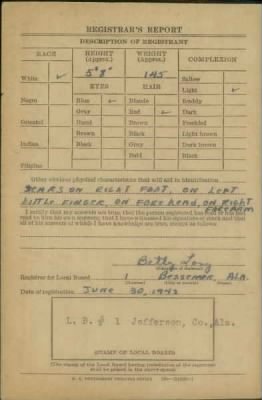 REGISTRAR'S REPORT
DESCRIPTION OF REGISTRANT
RACE HEIGHT (Approx.) WEIGHT (Approx.) COMPLEXION
White ✓ 5'8" 145 Sallow
EYES HAIR Light ✓
Negro Blue ✓ Blonde Ruddy
Gray Red ✓ Dark
Oriental Hazel Brown Freckled
Brown Black Light brown
Indian Black Gray Dark brown
Bald Black
Filipino
Other obvious physical characteristics that will aid in identification
SCARS ON RIGHT FOOT, ON LEFT
LITTLE FINGER, ON FOREHEAD, ON RIGHT
FOREARM
I certify that my answers are true; that the person registered has read or has had
read to him his own answers; that I have witnessed his signature or mark and that
all of his answers of which I have knowledge are true, except as follows:
Betty
Registrar for Local Board 1 Bessemer, Ala.
Date of registration June 30, 1942
L. B. # 1 Jefferson, Co., Ala.
(STAMP OF LOCAL BOARD)
(The stamp of the Local Board having jurisdiction of the registrant
shall be placed in the above space)